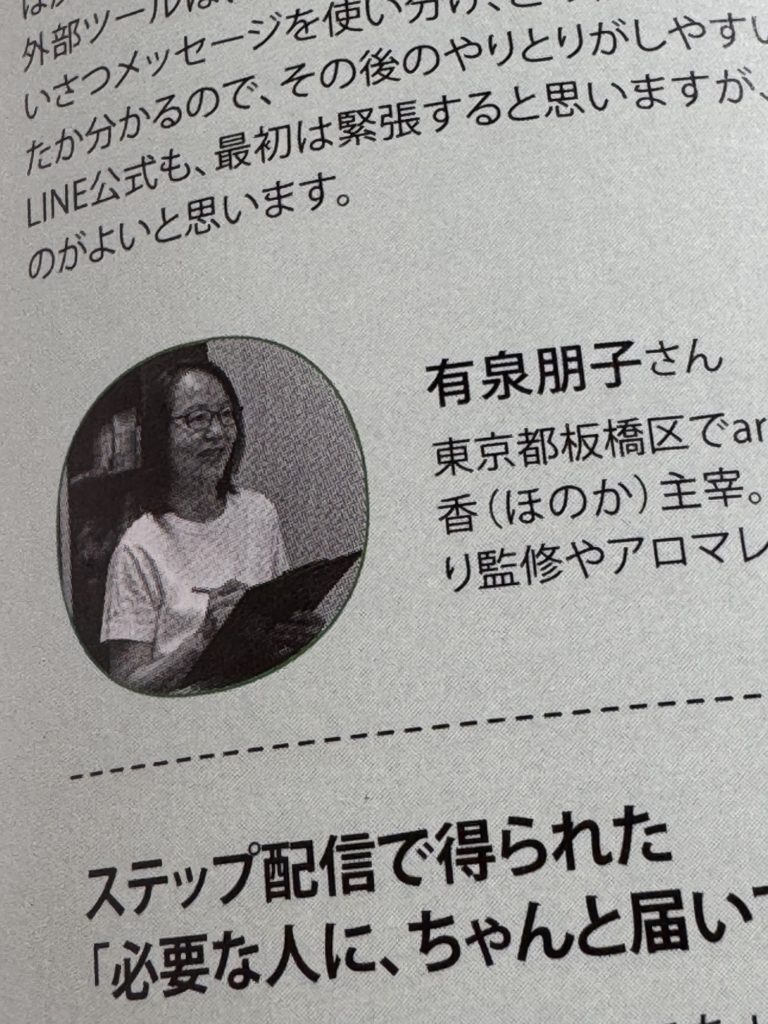 外部ツールは、
いさつメッセージを使い分け、
たか分かるので、その後のやりとりがしやすい
LINE公式も、最初は緊張すると思いますが、
のがよいと思います。
有泉朋子さん
東京都板橋区でar
香（ほのか）主宰。
り監修やアロマレ
ステップ配信で得られた
「必要な人に、ちゃんと届いて